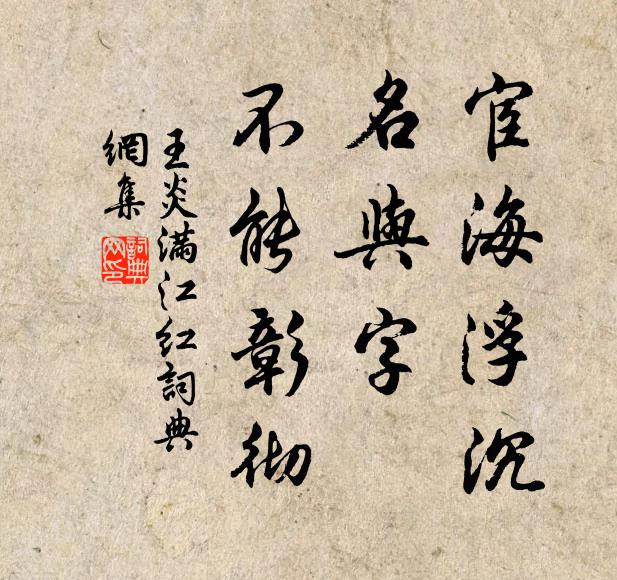 宦海浮沉
名與字
不能彰彻
王炎满江红詞典
網集
詞典
网印